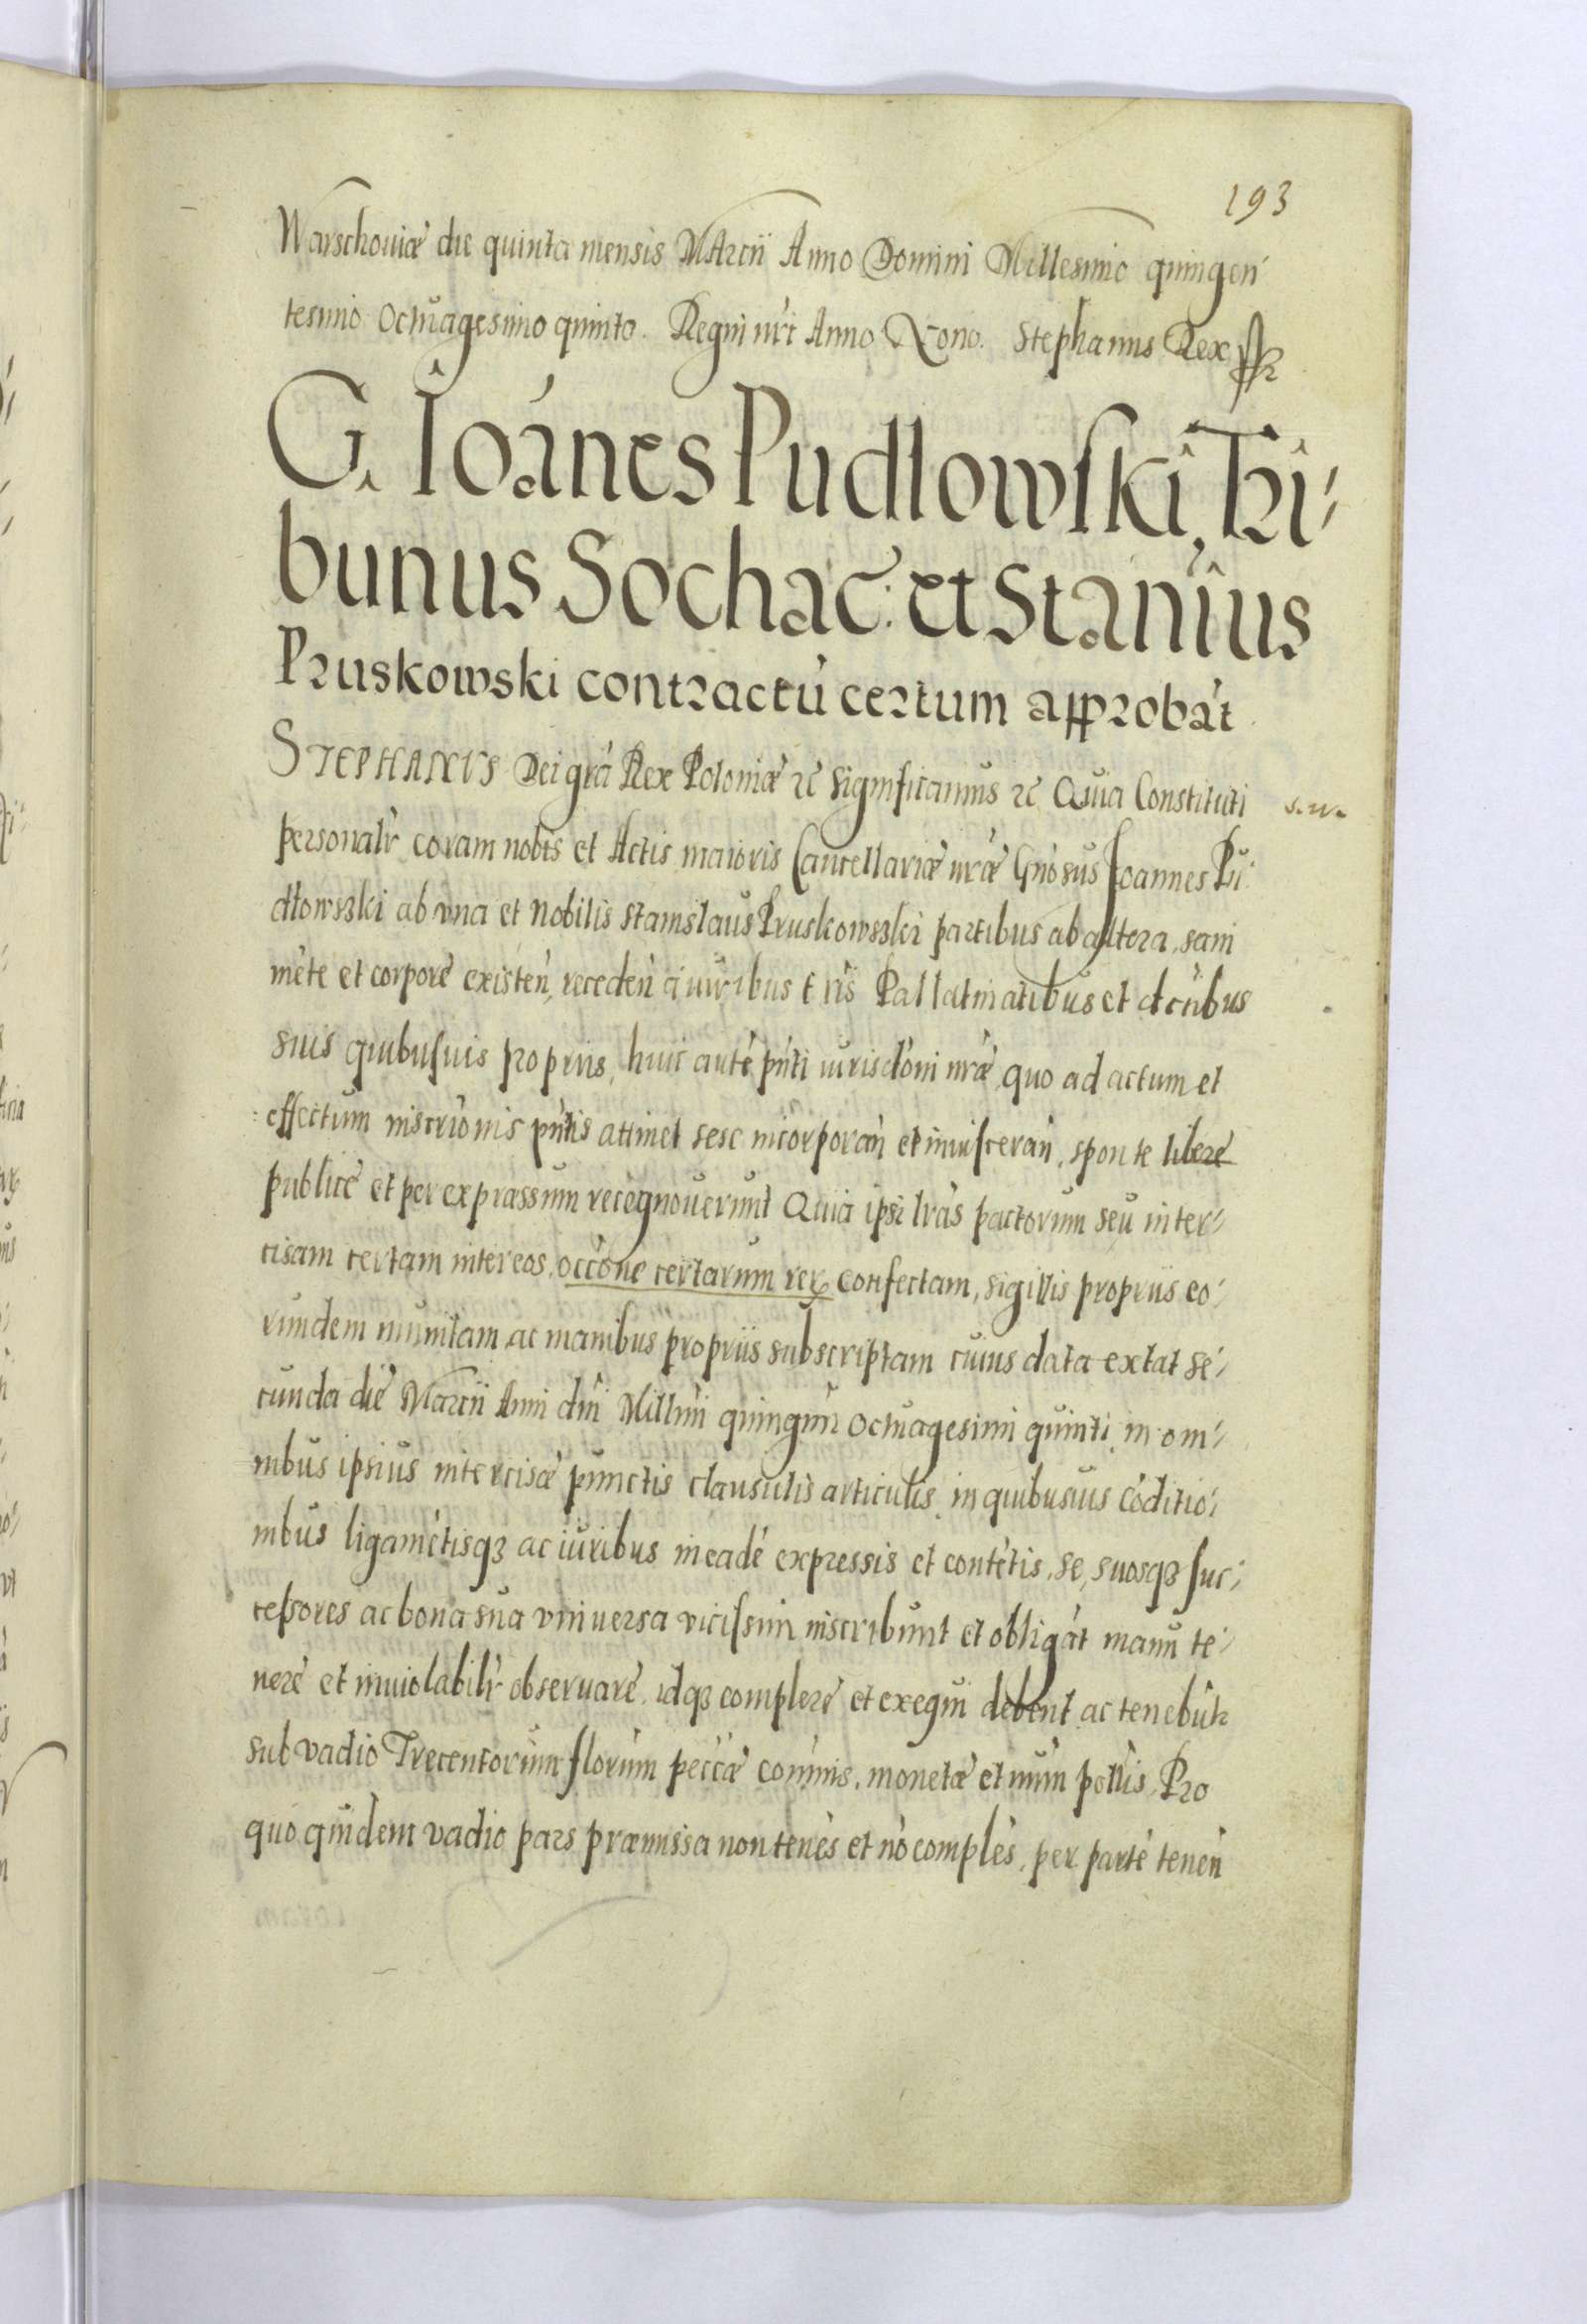 193
Warschouiæ die quinta mensis MArcii Anno Domini Millesimo quingen
tesimo Octuagesimo quinto. Regni nr̃i Anno Nono. Stephanus Rex
G. Ioánes Pudlowski, Tri-
bunus Sochac̃: et Stanĩus
Pruskowski contractũ certum approbãt
STEPHANVS Dei grã Rex Poloniæ ꝛc̃ Significamus ꝛc̃ Quia Constituti
personalr̃ coram nobis et Actis maioris Cancellariæ nr̃æ Gñosus Joannes Pu-
dłowszki ab vna et Nobilis Stanislaus Pruskowszki partibus ab altera, sani
mẽte et corpore existeñ, recedeñ a iuribus t̃ris Pallatinatibus et dc̃tibus
suis quibusuis proprijs, huic autẽ pñti iurisdc̃oni nr̃æ quo ad actum et
effectum inscrĩonis pñtis attinet sese incorporañ et inuisceran̄, sponte libere
publice et per expræssum recognouerunt Quia ipsi lr̃as pactorum seu inter-
cisam certam inter eos, occõne certarum reꝝ confectam, sigillis propriis eo-
rundem munitam ac manibus propriis subscriptam cuius data extat se-
cunda die Marcii Anni dñi Millm̃i quingm̃i Octuagesimi quinti, in om-
nibus ipsius intercisæ punctis clausulis articulis, in quibusuis cõditio-
nibus ligamẽtisqꝫ ac iuribus in eadẽ expressis et contẽtis, se, suosqꝫ suc-
cessores ac bona sua vniuersa vicissim inscribunt et obligãt manu te-
nere et inuiolabilr̃ obseruare, idqꝫ complere et exequi debent ac tenebũtr
sub vadio Trecentorum florum pecc̃æ cõmunis, monetæ et num̃ polĩs, Pro
quo quidem vadio pars præmissa non tenẽs et nõ complẽs, per partẽ teneñ